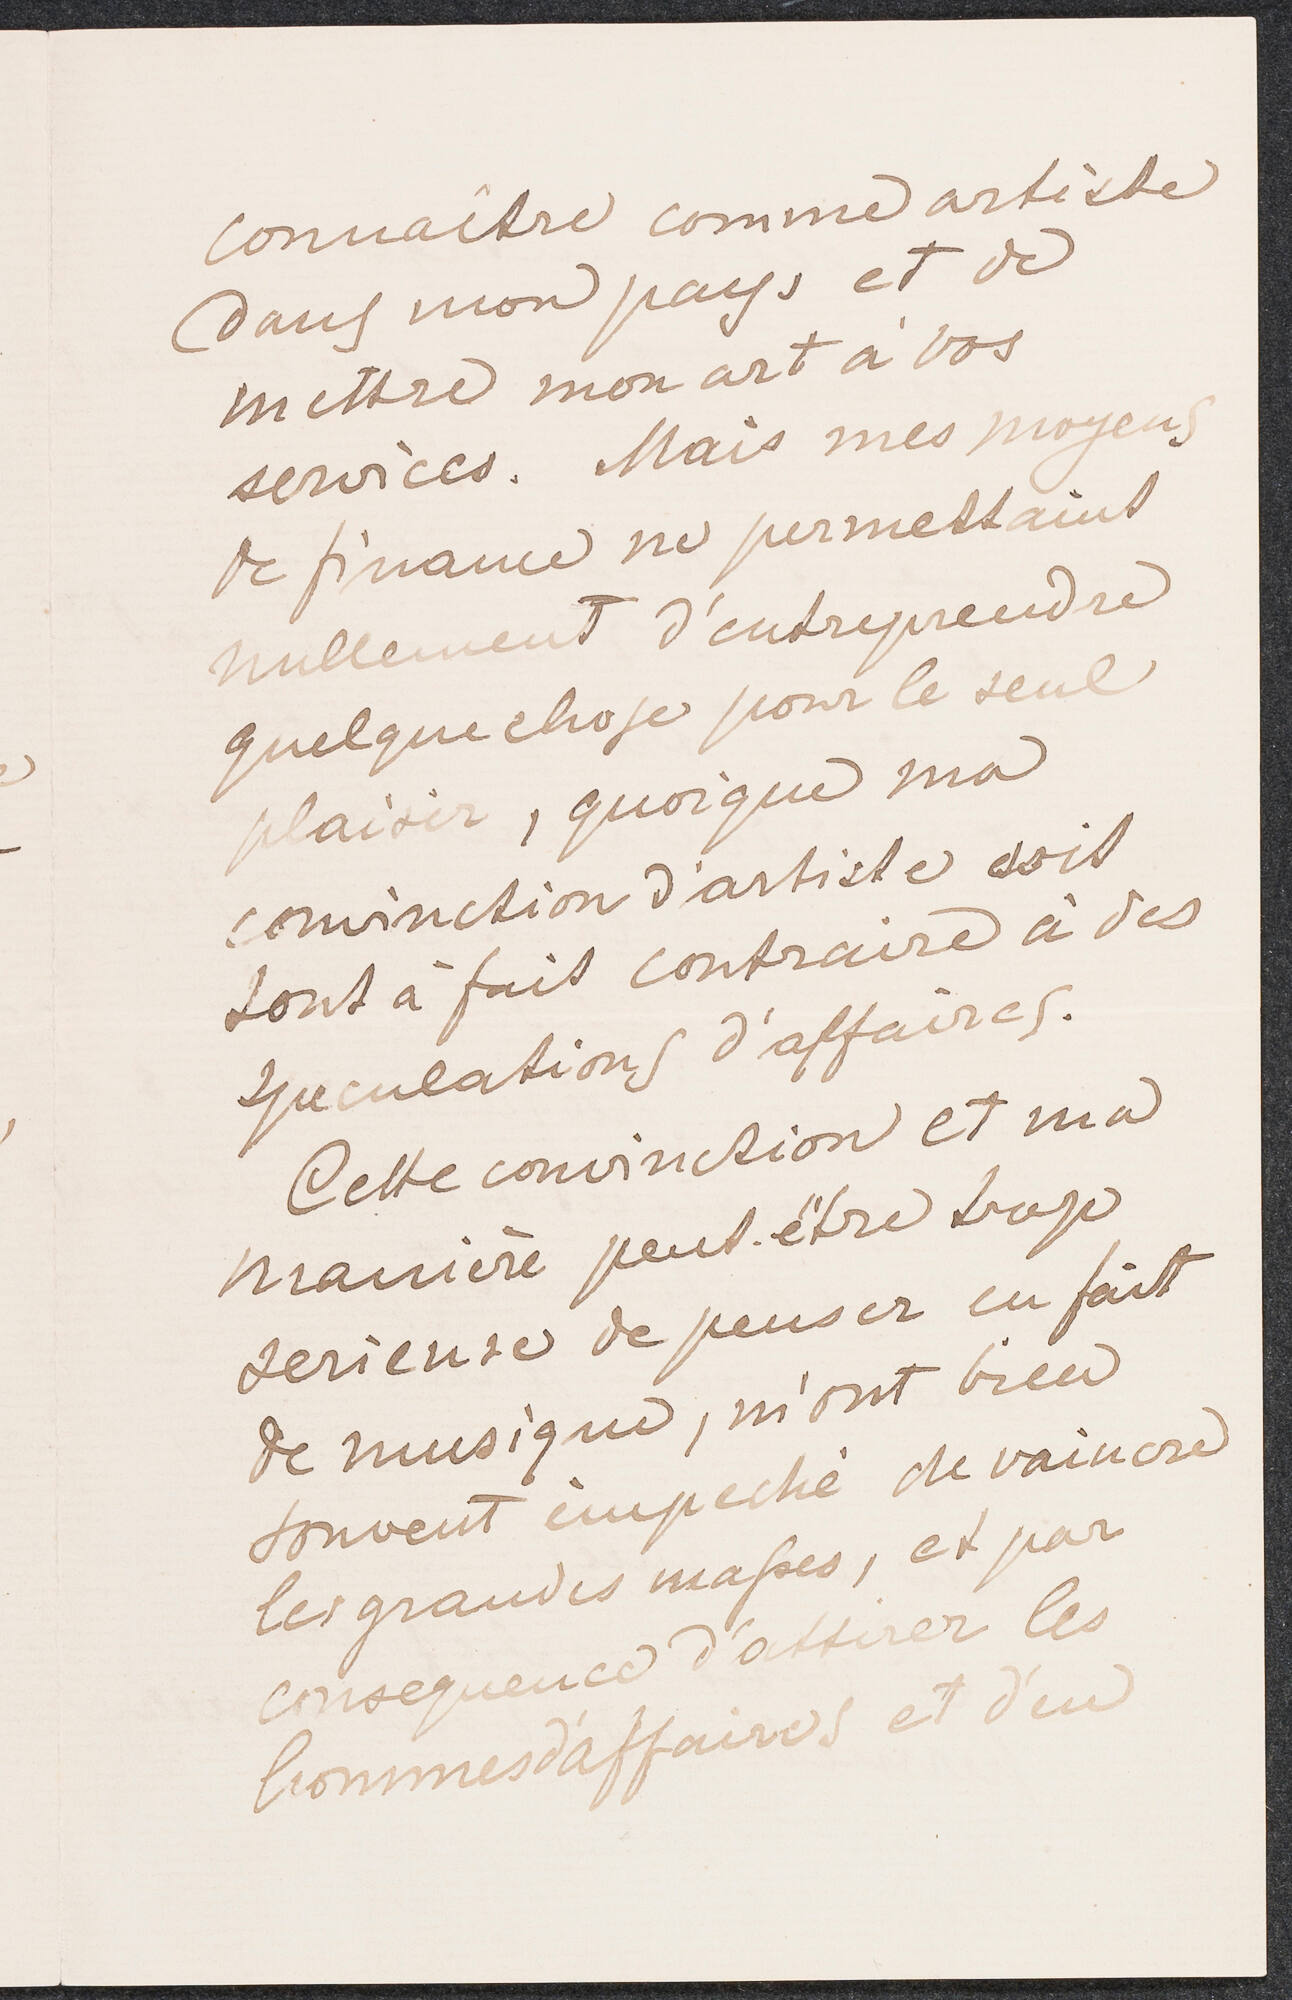 connaître comme artiste
dans mon pays et de
mettre mon art à vos
services. Mais mes moyens
de finance ne permettaint
nullement d'entreprendre
quelque chose pour le seul
plaisir, quoique ma
convinction d'artiste soit
tout à fait contraire à des
speculations d'affaires.
Cette convinction et ma
manière peut-être trop
serieuse de penser en fait
de musique, m'ont bien
souvent empeché de vaincre
les grandes masses, et par
consequence d'attirer les
hommes d'affaires et d'en